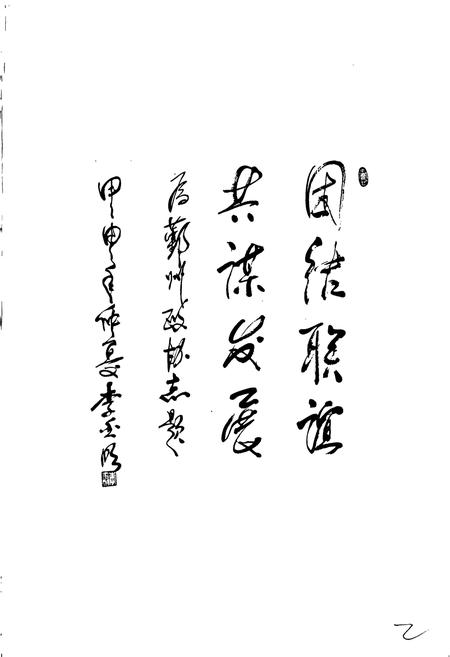 团结联谊
共谋发展
为鄞州政协志题
甲申年仲夏 李金明
乙